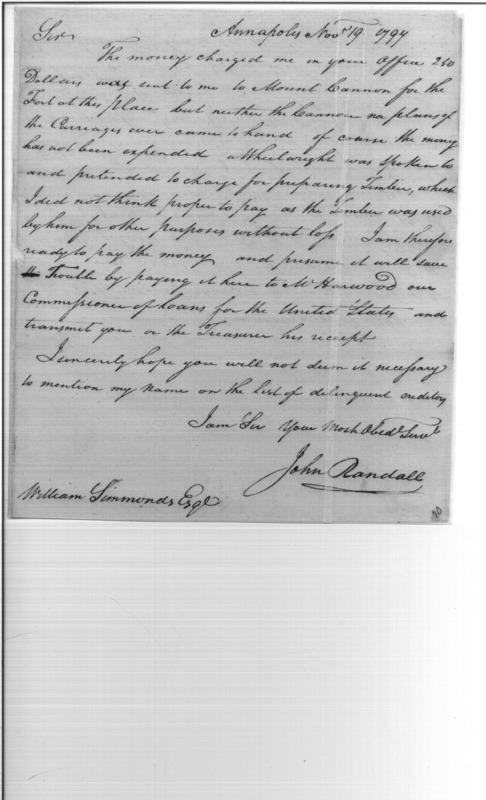 Sir, Annapolis Novr 19 1797
The money charged me in your Office 250
Dollars was sent to me to Mount Cannon for the
Fort at this place but neither the Cannon nor plans of
the Carriages ever came to hand of course the money
has not been expended a Wheelwright was spoken to
and pretended to charge for preparing Timber, which
I did not think proper to pay as the Timber was used
by him for other purposes without loss I am therefore
ready to pay the money and presume it will save
Trouble by paying it here to Mr Harwood our
Commissioner of loans for the United States and
transmit you or the Treasurer his receipt
I sincerely hope you will not deem it necessary
to mention my name on the list of delinquent creditors
I am Sir Your Most Obedt Servt
John Randall
William Simmonds Esqr